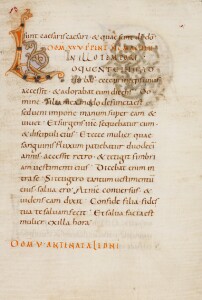 sunt caesaris caesari & quae sunt dī dō
IN ILLO TEMPORE
LOQUENTE IHU AD
turbas ecce princeps unus
accessit & adorabat eum dicens Do
mine filia mea modo defuncta est
sed ueni impone manum super eam &
uiuet Et surgens ihc sequebatur eum
& discipuli eius Et ecce mulier quae
sanguinis fluxum patiebatur duodeci
annis accessit retro & tetigit fimbria
uestimenti eius Dicebat enim in
tra se Si tetigero tantum uestimentū
eius salua ero At ihc conuersus &
uidens eam dixit Confide filia fides
tua te saluam fecit Et salua facta est
mulier ex illa hora
DOM V ANTE NATALE DNI